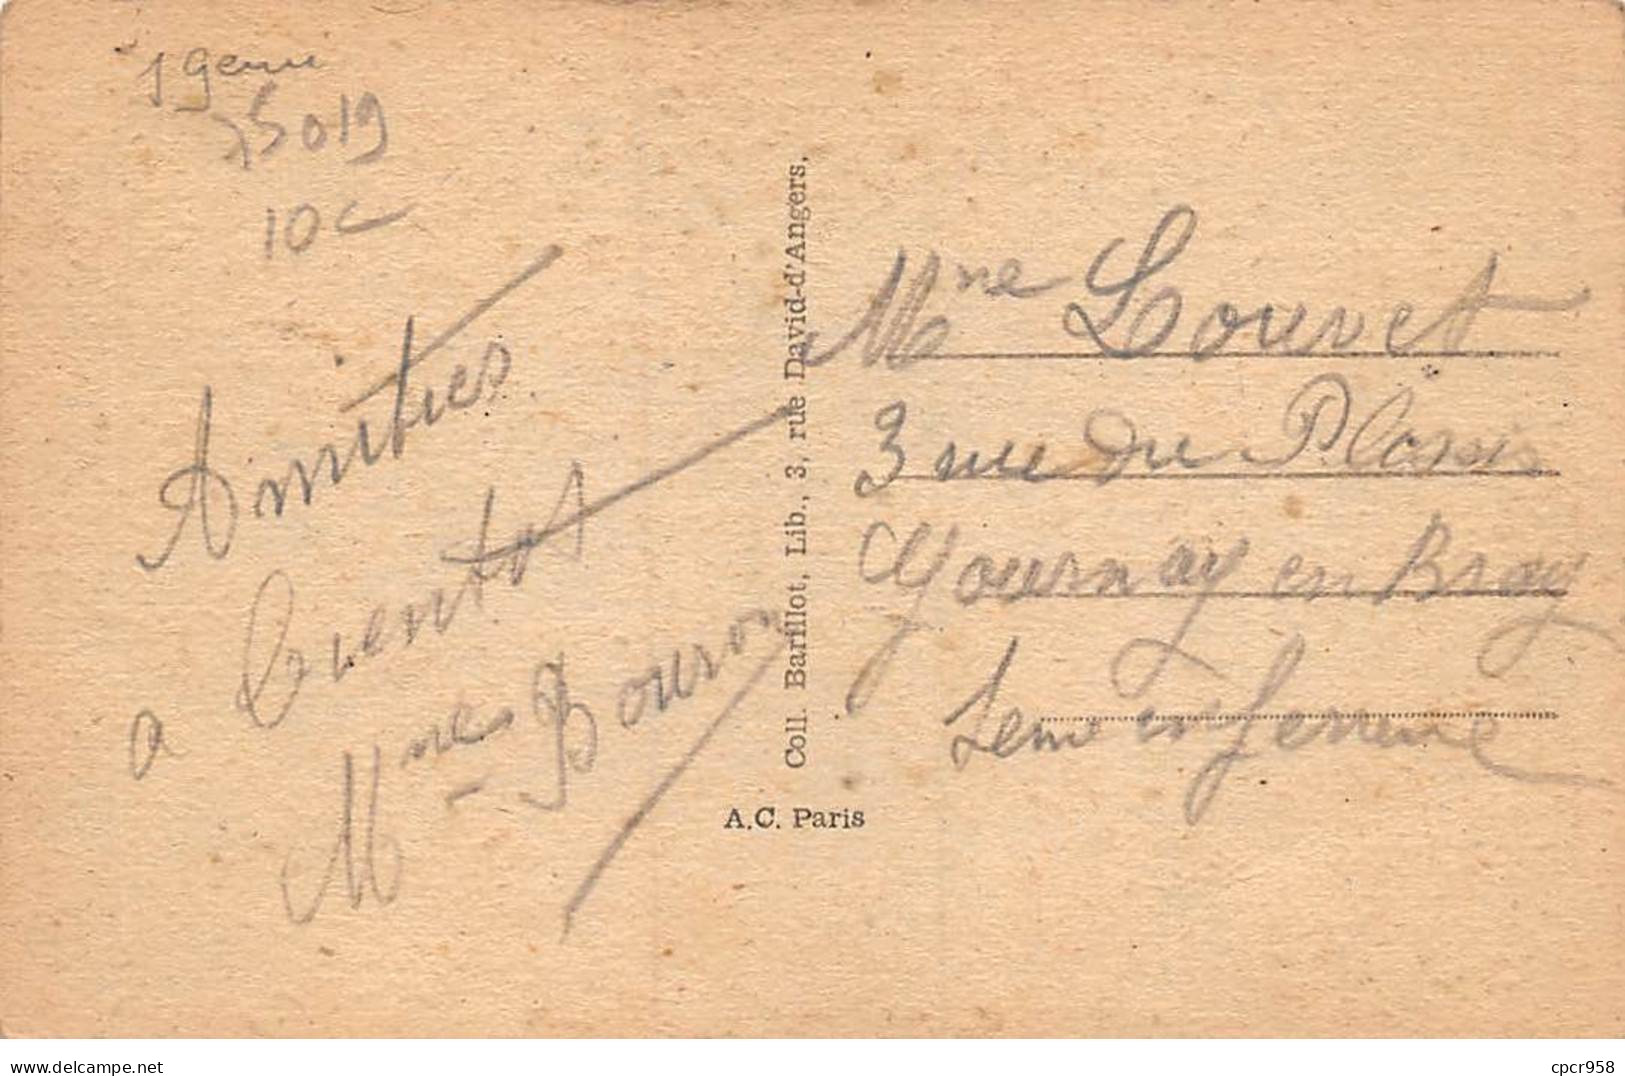 19eme
75019
10c
Amitiés
a Bientot
Mmes Bouron
Coll. Barillot, Lib., 3, rue David-d'Angers,
A.C. Paris
Mme Louvet
3 rue du Plessis
Gournay en Bray
Seine inferieure
delcampe.net
cpcr958